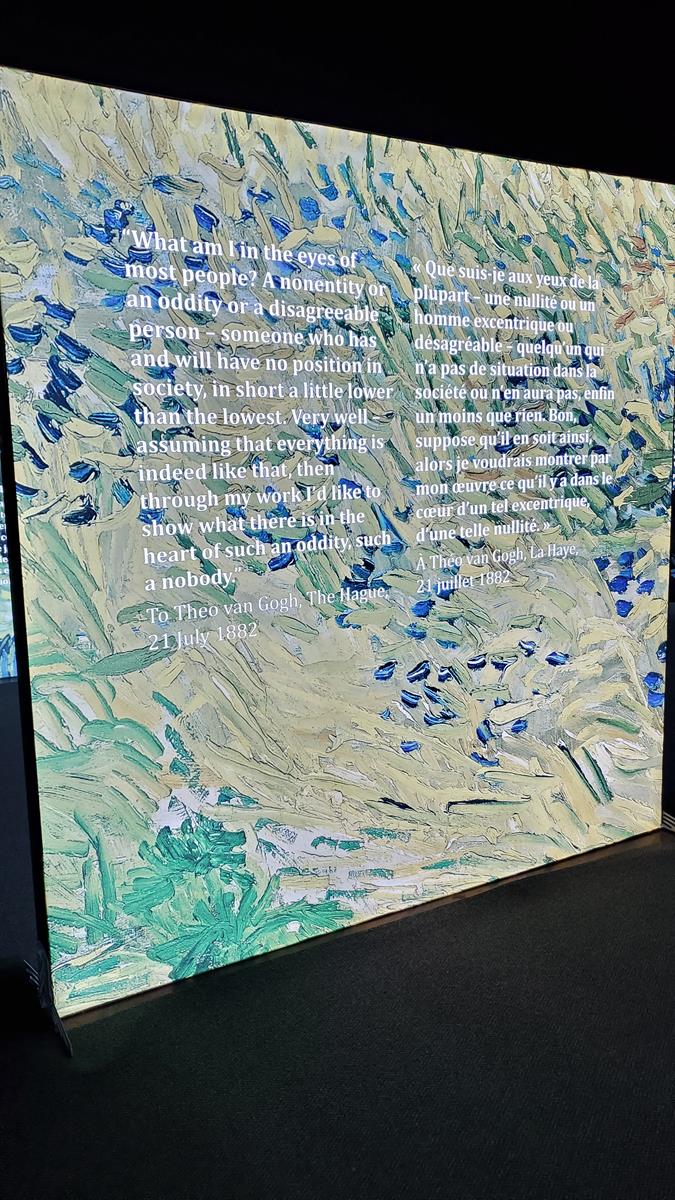 “What am I in the eyes of
most people? A nonentity or
an oddity or a disagreeable
person – someone who has
and will have no position in
society, in short a little lower
than the lowest. Very well
assuming that everything is
indeed like that, then
through my work I’d like to
show what there is in the
heart of such an oddity, such
a nobody.”
To Theo van Gogh, The Hague,
21 July 1882
« Que suis-je aux yeux de la
plupart – une nullité ou un
homme excentrique ou
désagréable – quelqu’un qui
n’a pas de situation dans la
société ou n’en aura pas, enfin
un moins que rien. Bon,
suppose qu’il en soit ainsi,
alors je voudrais montrer par
mon œuvre ce qu’il y a dans le
cœur d’un tel excentrique,
d’une telle nullité. »
À Théo van Gogh, La Haye,
21 juillet 1882